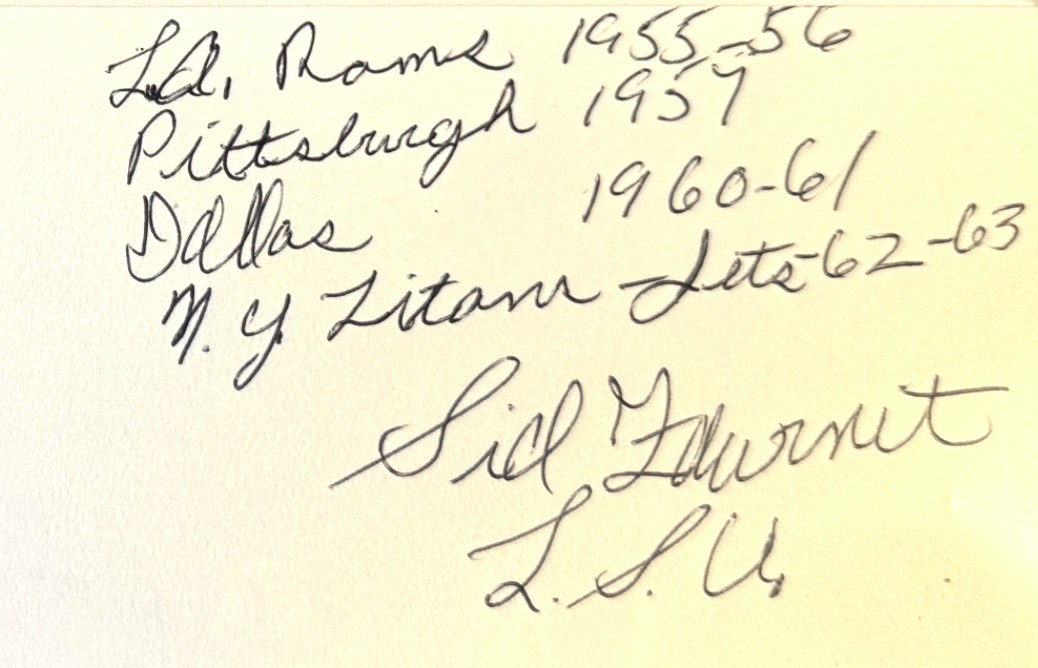 L.A. Rams 1955-56
Pittsburgh 1957
Dallas 1960-61
N.Y. Titans - Jets - 62-63
Sid Fournet
L.S.U.